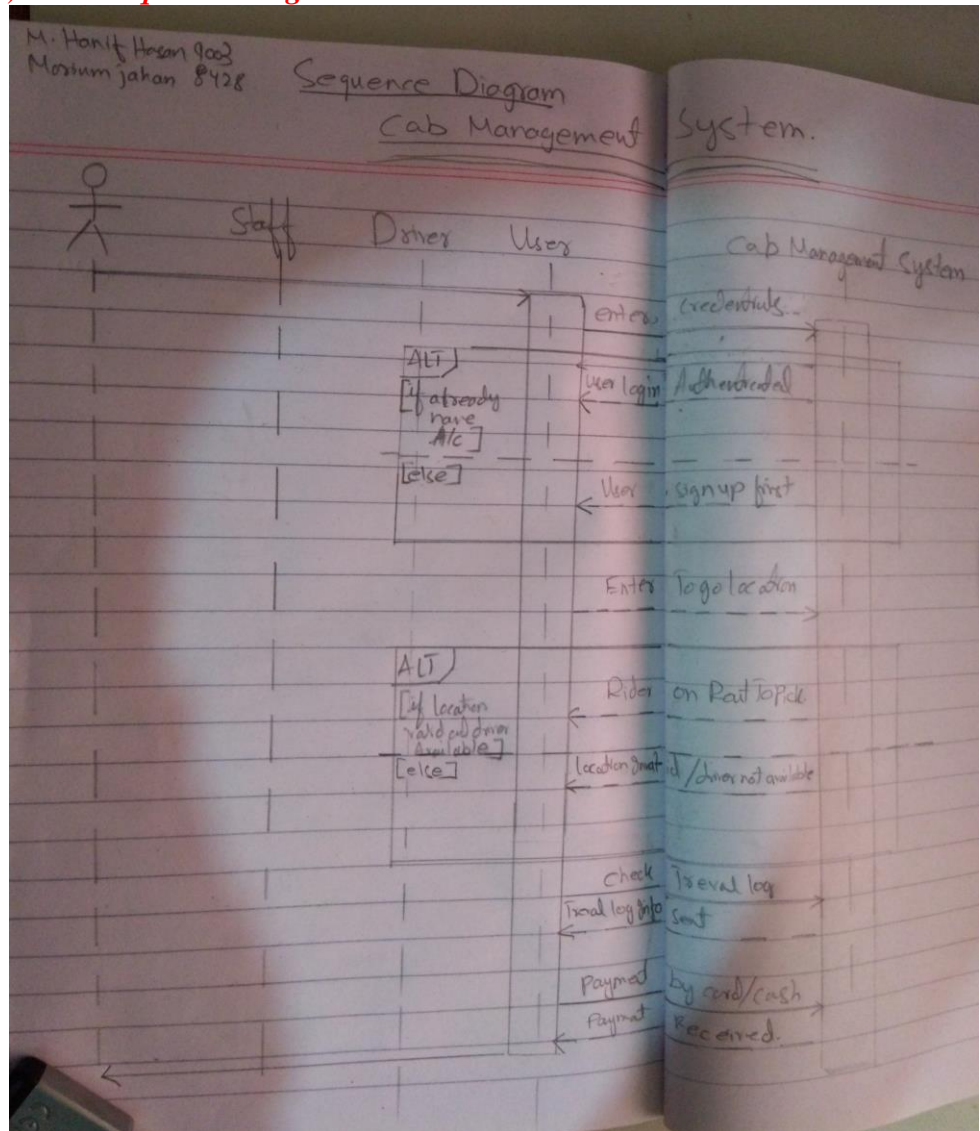 M. Hanif Hasan 9003
Morium jahan 8428
Sequence Diagram
Cab Management System.
Staff Driver User Cab Management System
enter credentials..
ALT
user login Authenticated
[if already
have
A/c]
[else]
User signup first
Enter To go location
ALT
[if location
valid and driver
Available]
Rider on Rout To Pick
[else]
location /driver not available
check Treval log
log Info sent
Payment by card/cash
Payment Received.